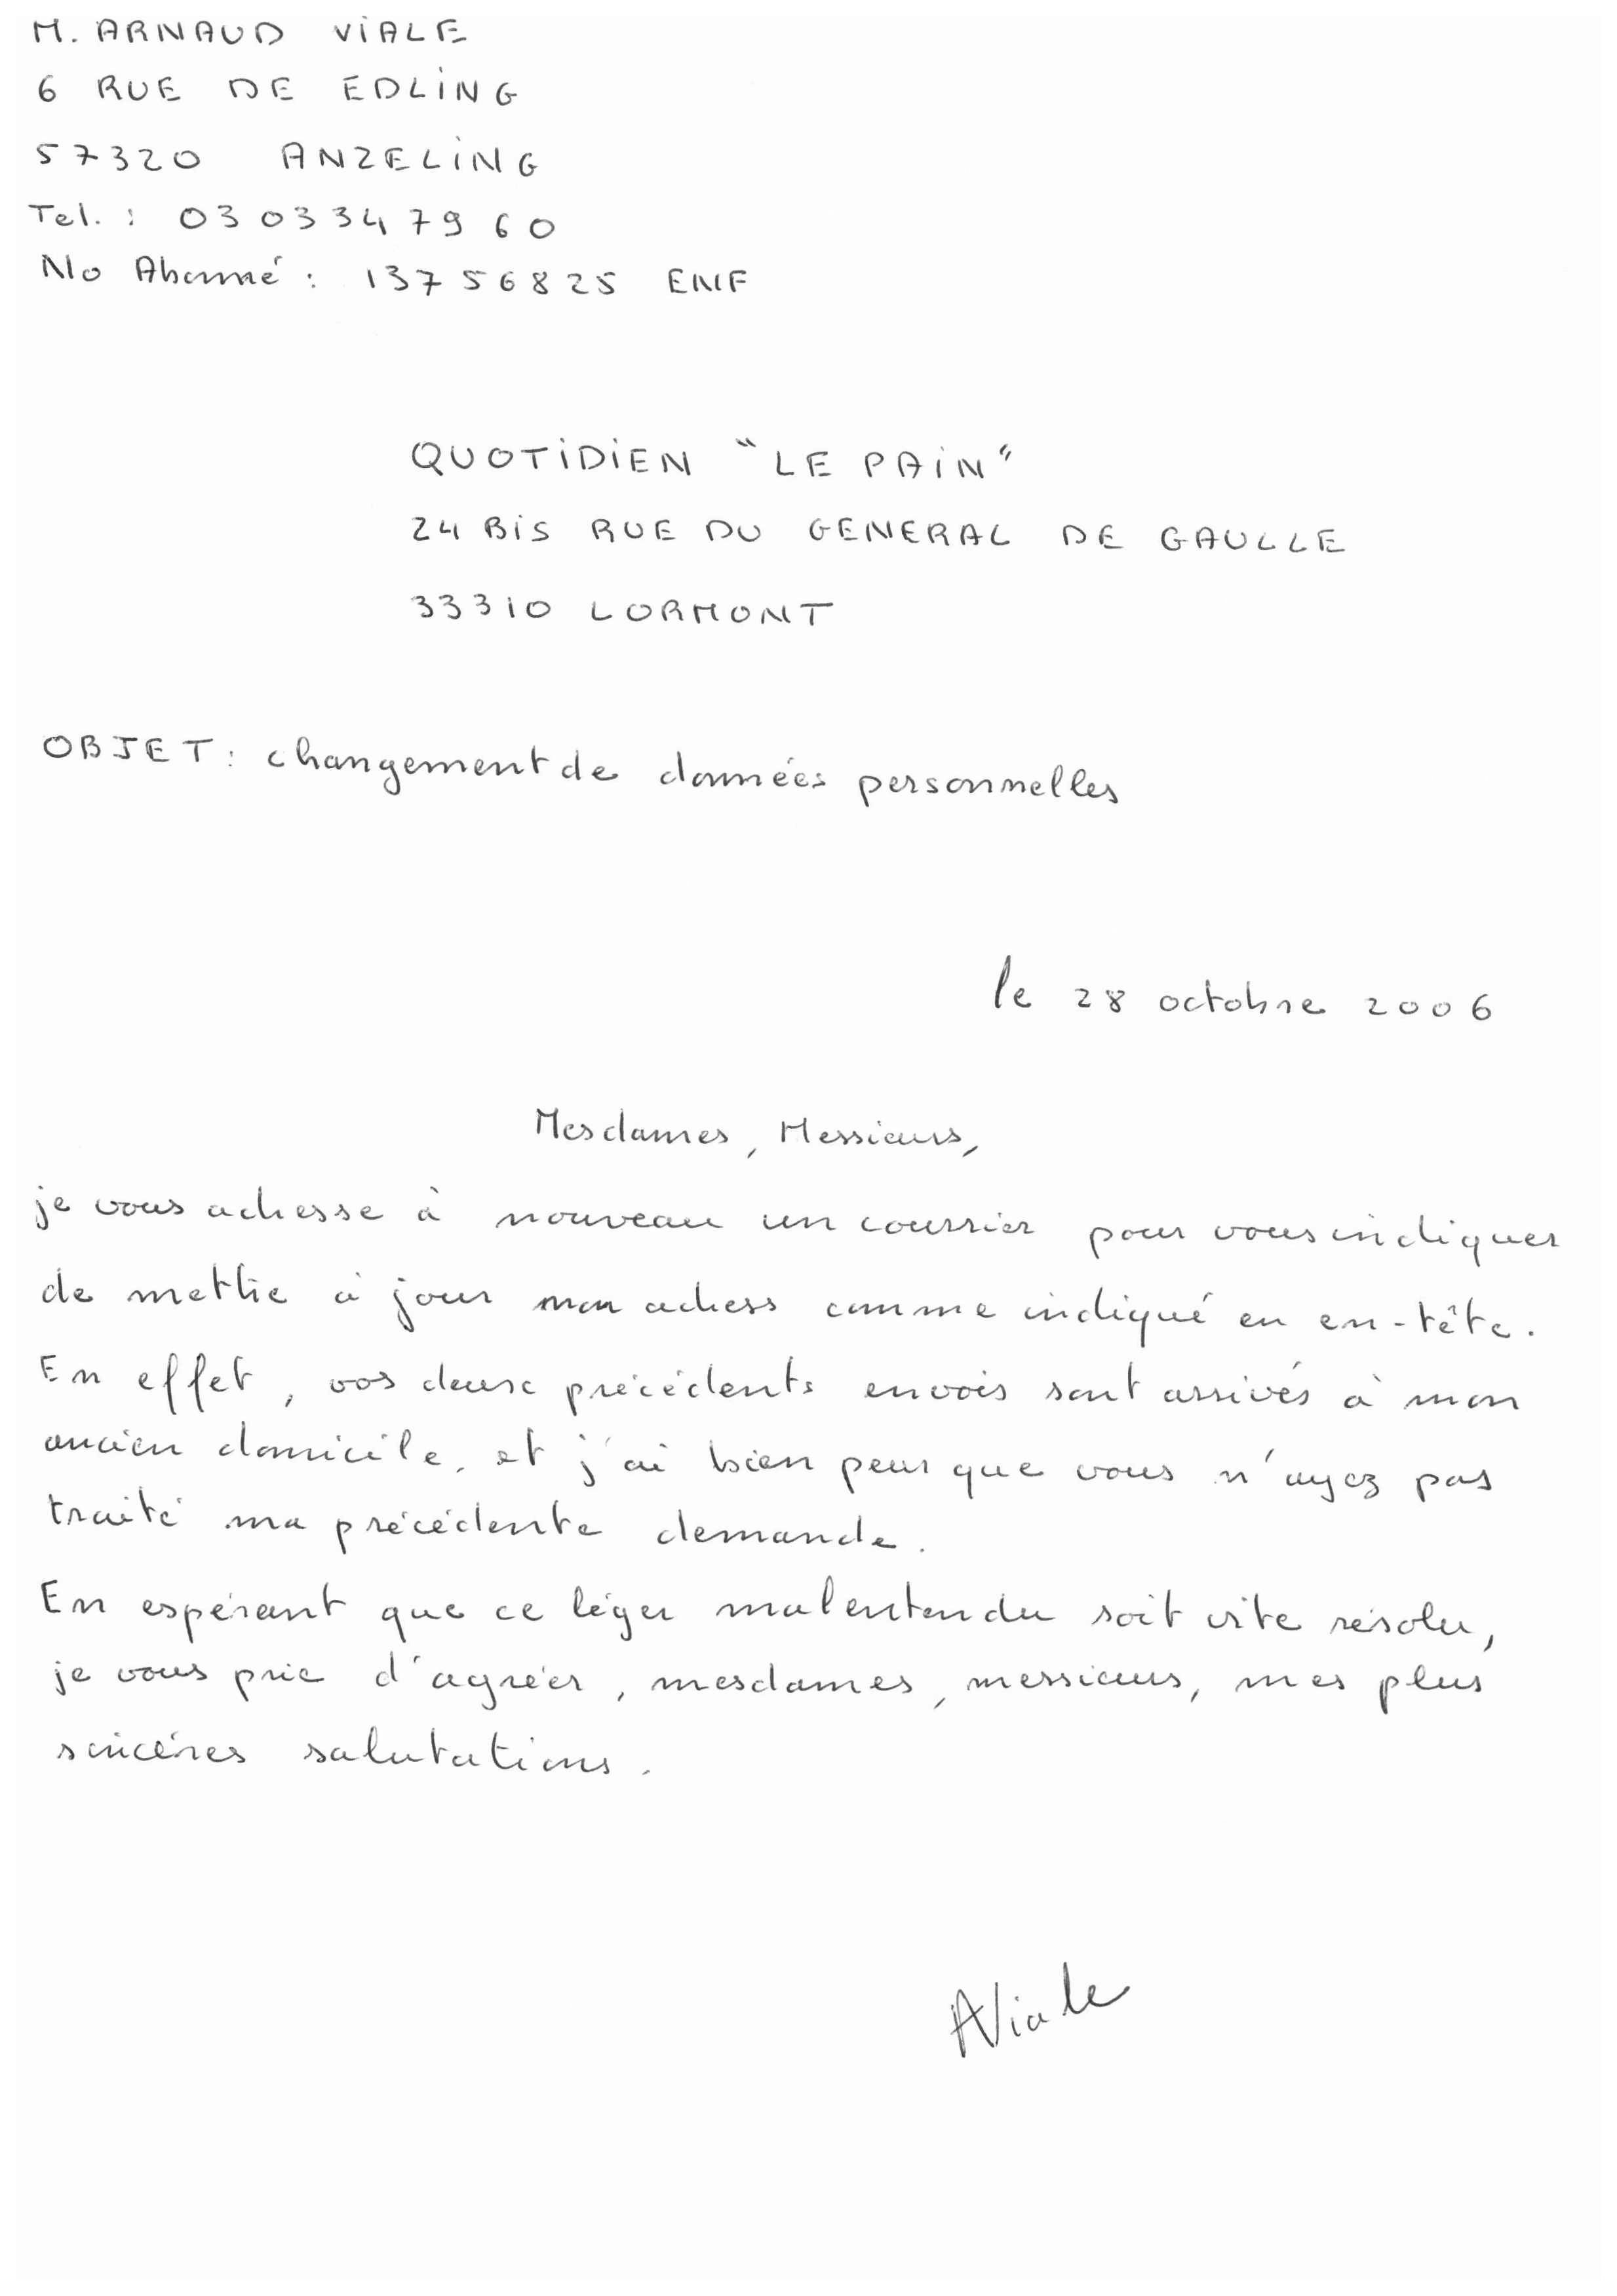 M. ARNAUD VIALE
6 RUE DE EDLING
57320 ANZELING
Tel. : 03 03 34 79 60
No Abonné : 13756825 ENF
QUOTIDIEN "LE PAIN"
24 BIS RUE DU GENERAL DE GAULLE
33310 LORMONT
OBJET : changement de données personnelles
le 28 octobre 2006
Mesdames, Messieurs,
je vous adresse à nouveau un courrier pour vous indiquer
de mettre à jour mon adress comme indiqué en en-tête.
En effet, vos deux précédents envois sont arrivés à mon
ancien domicile, et j'ai bien peur que vous n'ayez pas
traité ma précédente demande.
En espérant que ce léger malentendu soit vite résolu,
je vous prie d'agréer, mesdames, messieurs, mes plus
sincères salutations.
AViale